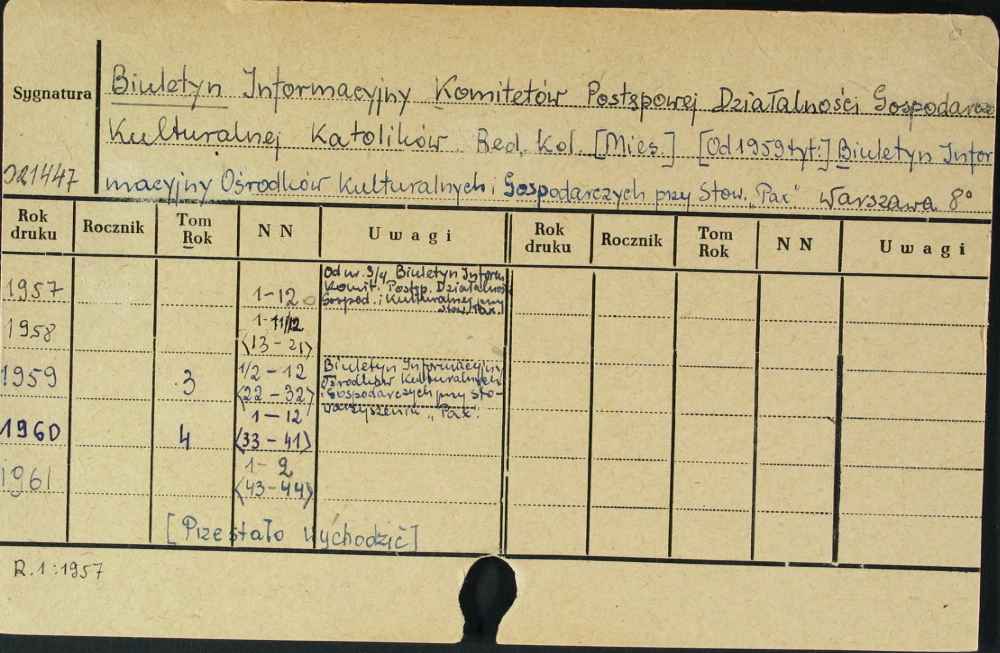 Sygnatura
Biuletyn Informacyjny Komitetów Postępowej Działalności Gospodarczo
Kulturalnej Katolików. Red. Kol. [Mies.] [Od 1959 tyt:] Biuletyn Infor
021447 macyjny Ośrodków Kulturalnych i Gospodarczych przy Stow. „Pax" Warszawa 8°
Rok druku Rocznik Tom Rok N N Uwagi Rok druku Rocznik Tom Rok N N Uwagi
1957 1-12 Od nr. 3/4 Biuletyn Inform.
Komit. Postęp. Działalnoś
Gospod. i Kulturalnej przy
Stow. Pax.
1958 1-11/12
<13-21>
1959 3 1/2-12 Biuletyn Informacyjny
<22-32> Ośrodków Kulturalnych
i Gospodarczych przy Sto-
warzyszeniu „Pax".
1960 4 1-12
<33-41>
1961 1-2
<43-44>
[Przestało wychodzić]
R.1:1957